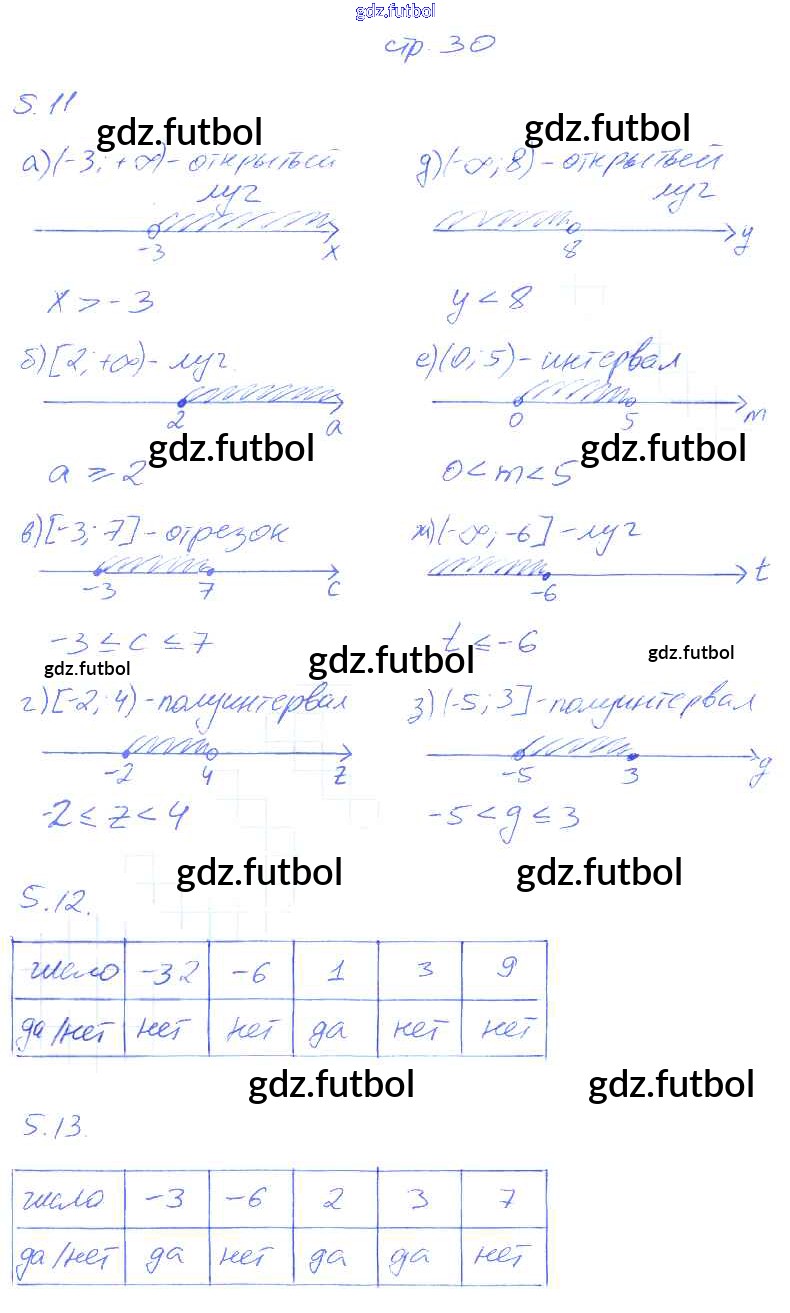 gdz.futbol
стр. 30
5.11
gdz.futbol
gdz.futbol
а) (-3; +∞) - открытый
луч
-3
x
x > -3
д) (-∞; 8) - открытый
луч
8
y
y < 8
б) [2; +∞) - луч.
2
a
gdz.futbol
a ≥ 2
е) (0; 5) - интервал
0
5
m
gdz.futbol
0 < m < 5
в) [-3; 7] - отрезок
-3
7
c
-3 ≤ c ≤ 7
ж) (-∞; -6] - луч
-6
t
t ≤ -6
gdz.futbol
gdz.futbol
gdz.futbol
г) [-2; 4) - полуинтервал
-2
4
z
-2 ≤ z < 4
з) (-5; 3] - полуинтервал
-5
3
g
-5 < g ≤ 3
gdz.futbol
gdz.futbol
5.12.
число -32 -6 1 3 9
да/нет нет нет да нет нет
gdz.futbol
gdz.futbol
5.13.
число -3 -6 2 3 7
да/нет да нет да да нет